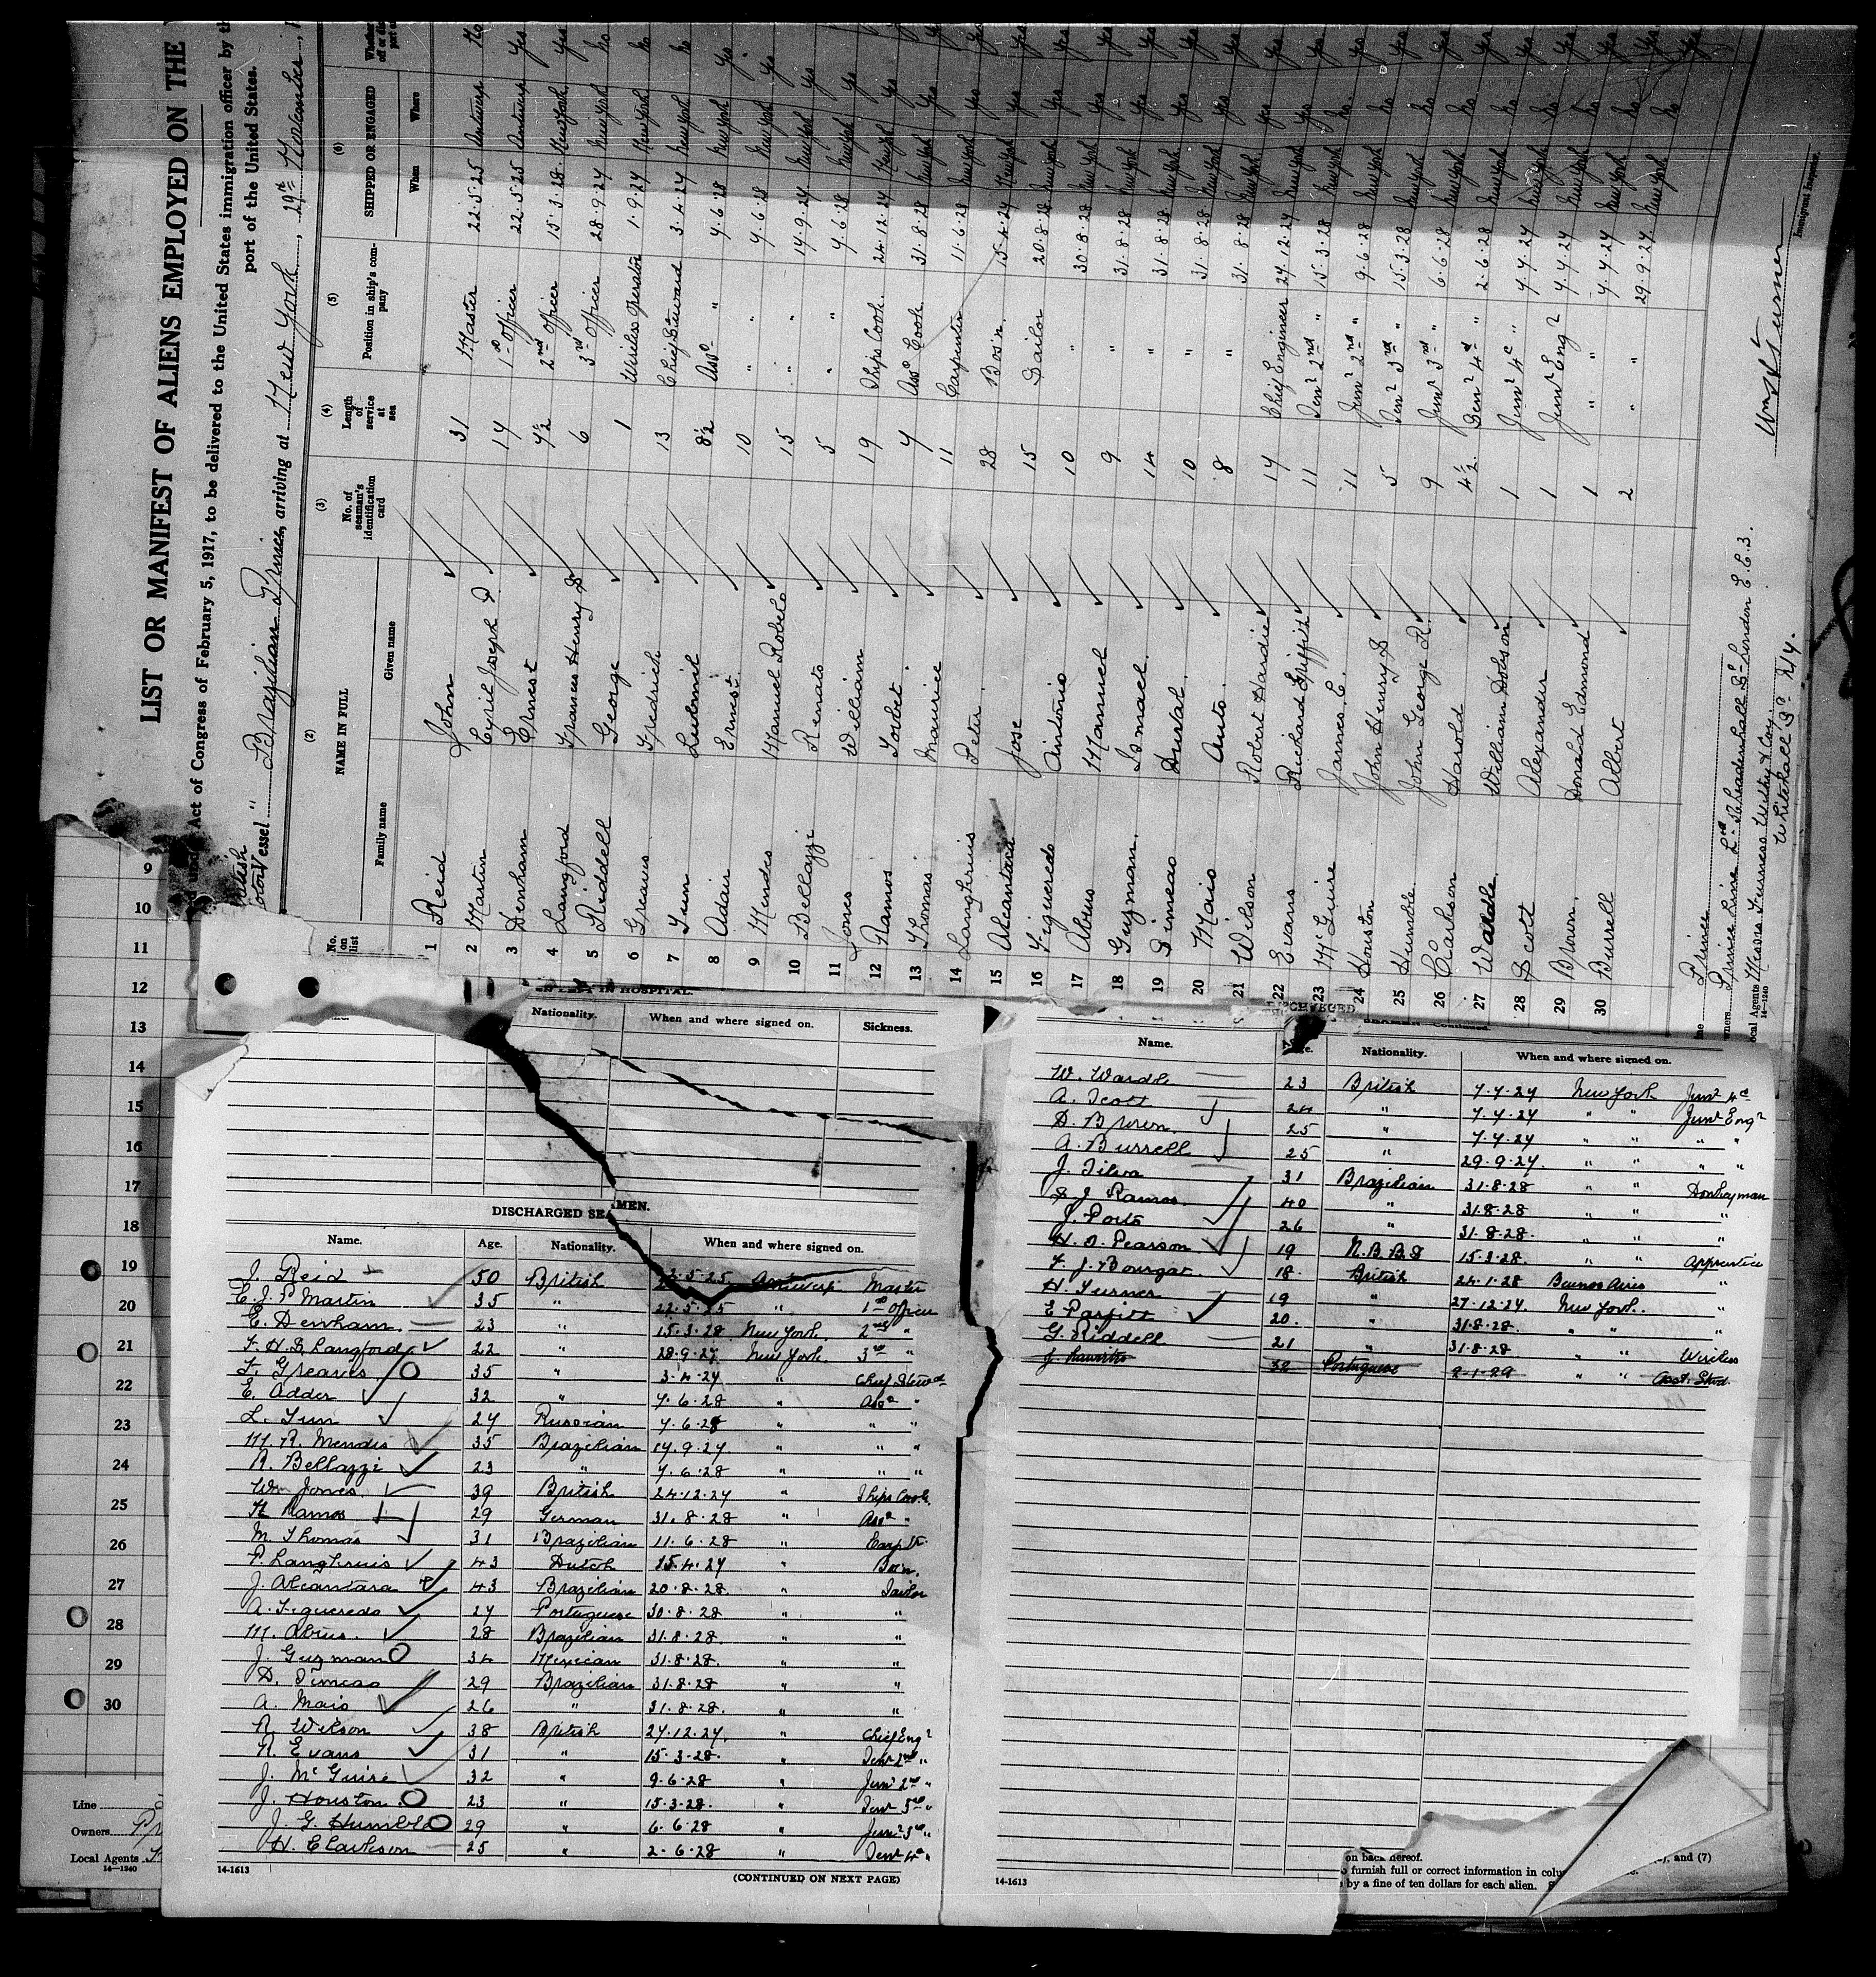 LIST OR MANIFEST OF ALIENS EMPLOYED ON THE
Act of Congress of February 5, 1917, to be delivered to the United States immigration officer by th
port of the United States.
Vessel Brazilian Prince, arriving at New York, 29th November,
(2) (3) (4) (5) (6)
No. on list
NAME IN FULL
Family name Given name
No. of seaman's identification card
Length of service at sea
Position in ship's company
SHIPPED OR ENGAGED
When Where
1 Reid John 31 Master 22.5.25 Antwerp No
2 Martin Cyril Joseph P. 14 1st Officer 22.5.25 Antwerp Yes
3 Denham Ernest 4½ 2nd Officer 15.3.28 New York Yes
4 Langford Francis Henry S 6 3rd Officer 28.9.27 New York No
5 Riddell George 1 Wireless Operator New York No
6 Greaves Fredrich 13 Chief Steward 3.4.24 New York No
7 Tum Ludmil 8½ Asst " New York Yes
8 Adair Ernest 10 " New York Yes
9 Mendes Manuel Robelo 15 " New York Yes
10 Bellazzi Renato 5 " New York Yes
11 Jones William 19 Ships Cook 24.12.27 New York Yes
12 Ramos 7 Asst Cook 31.8.28 New York Yes
13 Thomas Maurice 11 Carpenter 11.6.28 New York Yes
14 Langhruis Peter 28 Bos'n 15.4.27 New York Yes
15 Alcantara Jose 15 Sailor 20.8.28 New York Yes
16 Figueredo Antonio 10 " 30.8.28 New York Yes
17 Abius Manuel 9 " 31.8.28 New York Yes
18 Guzman Ismael 14 " 31.8.28 New York Yes
19 Simeao Durval 10 " 31.8.28 New York Yes
20 Maio 8 " 31.8.28 New York Yes
21 Wilson Robert Hardie 17 Chief Engineer 27.12.27 New York Yes
22 Evans Richard Griffith 11 Senr 2nd " 15.3.28 New York Yes
23 McGuire James C. 11 Junr 2nd " 9.6.28 New York No
24 Houston John Henry S 5 Senr 3rd " 15.3.28 New York No
25 Humble John George R. 9 Junr 3rd " 6.6.28 New York No
26 Clarkson Harold 4½ Senr 4th " 2.6.28 New York No
27 Wardle William Dobson 1 Junr 4th " 7.7.27 New York No
28 Scott Alexander 1 Junr Engr 7.7.27 New York No
29 Brown Donald Edmond 1 " 7.7.27 New York No
30 Burrell Albert 2 " 29.9.27 New York No
Prince
Owners Prince Line Ltd. Leadenhall St. London E.C.3.
Local Agents Messrs Furness Withy & Coy.
Whitehall St. N.Y.
14-1240
Immigrant Inspector.
9
10
11
12
13
14
15
16
17
18
19
20
21
22
23
24
25
26
27
28
29
30
Line
Owners Pr
Local Agents
14-1240
IN HOSPITAL.
Nationality. When and where signed on. Sickness.
DISCHARGED SEAMEN.
Name. Age. Nationality. When and where signed on.
J. Reid 50 British 22.5.25 Antwerp Master
C. J. P. Martin 35 " 22.5.25 1st Officer
E. Denham 23 " 15.3.28 New York 2nd "
F. H. S. Langford 22 " 28.9.27 New York 3rd "
F. Greaves 35 " 3.4.24 " Chief Stewd
E. Adder 32 " 7.6.28 " Asst "
L. Tum 27 Russian 7.6.28 " " "
M. R. Mendis 35 Brazilian 14.9.27 " " "
R. Bellazzi 23 " 7.6.28 " " "
Wm Jones 39 British 24.12.27 " Ships Cook
Ramos 29 German 31.8.28 " Asst "
M. Thomas 31 Brazilian 11.6.28 " Carptr
P. Langhruis 43 Dutch 15.4.27 " Bos'n.
J. Alcantara 43 Brazilian 20.8.28 " Sailor
A. Figueredo 27 Portuguese 30.8.28 " "
M. Abius 28 Brazilian 31.8.28 " "
J. Guzman 34 Mexican 31.8.28 " "
D. Simeao 29 Brazilian 31.8.28 " "
A. Maio 26 " 31.8.28 " "
R. Wilson 38 British 27.12.27 " Chief Engr
R. Evans 31 " 15.3.28 " Senr 2nd "
J. McGuire 32 " 9.6.28 " Junr 2nd "
J. Houston 23 " 15.3.28 " Senr 3rd "
J. G. Humble 29 " 6.6.28 " Junr 3rd "
H. Clarkson 25 " 2.6.28 " Senr 4th "
14-1613
(CONTINUED ON NEXT PAGE)
DISCHARGED
SEAMEN—Continued.
Name. Age. Nationality. When and where signed on.
W. Wardle 23 British 7.7.27 New York Junr 4th
A. Scott 24 " 7.7.27 " " Junr Engr
D. Brown 25 " 7.7.27 " " " "
A. Burrell 25 " 29.9.27 " " " "
J. Silva 31 Brazilian 31.8.28 " " Donkeyman
J. Ramos 40 " 31.8.28 "
J. Porto 26 " 31.8.28 "
H. O. Pearson 19 N.B.B.S 15.3.28 Apprentice
F. J. Bourgat 18 British 24.1.28 Buenos Aires "
H. Turner 19 " 27.12.27 New York "
E. Parfitt 20 " 31.8.28 " " "
G. Riddell 21 " 31.8.28 " " Wireless
32 Portuguese 2-1-29 " " Asst. Stwd.
14-1613
on back hereof.
furnish full or correct information in colu
by a fine of ten dollars for each alien.
and (7)